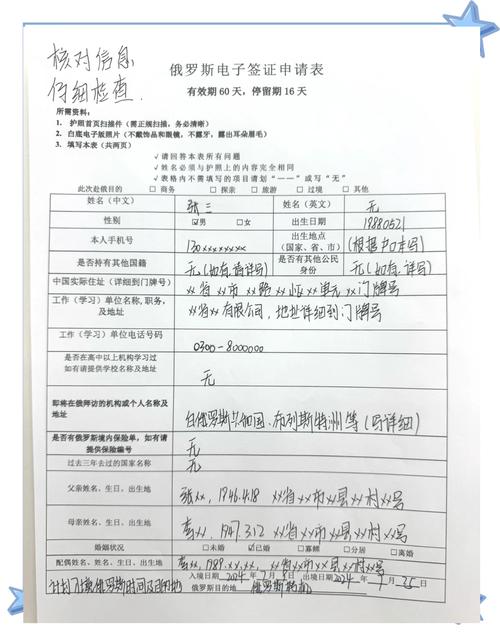 核对信息
仔细检查.
俄罗斯电子签证申请表
有效期 60 天，停留期 16 天
所需资料：
1. 护照首页扫描件（需正规扫描，务必清晰）
2. 白底电子版照片（不戴饰品和眼镜，不露牙，露出耳朵眉毛）
3. 填写本表（共两页）
√ 请回答本表所有问题
√ 姓名必须与护照上的内容完全相同
√ 表格内不需填写的项目请划“——”或写“无”
此次赴俄目的 □ 商务 □ 探亲 □ 旅游 □ 过境 □ 其他
姓名（中文） 张三 姓名（英文） 无
性别 ☑男 □女 出生日期 19880521
本人手机号 130xxxxxxxx 出生地点（国家、省、市） (根据户口本写)
是否持有其他国籍 无(如有请详写) 是否有其他公民身份 无(如有.详写)
中国实际住址（详细到门牌号） xx省xx市xx路xx栋xx单元xx门牌号
工作（学习）单位名称,职务,及地址 xx省xx有限公司，地址详细到门牌号
工作（学习）单位电话号码 0300-8000000
是否在高中以上机构学习过
如有请提供学校名称及地址 无
即将在俄拜访的机构或个人名称及地址 白俄罗斯共和国、布列斯特洲等(写详细)
是否有俄罗斯境内保险单，如有请提供保险编号 无
过去三年去过的国家名称 无
父亲姓名、生日、出生地 张xx，1946.4.18 xx省xx市xx县xx村xx号
母亲姓名、生日、出生地 xx，1947.3.12 xx省xx市xx县xx村xx号
婚姻状况 □未婚 ☑已婚 □寡鳏 □分居 □离婚
配偶姓名、生日、出生地 xx，1989.xx.xx，xx省xx市xx县xx村xx号
入境日期 2024 年 7 月 8 日 出境日期 2024 年 7 月 25 日